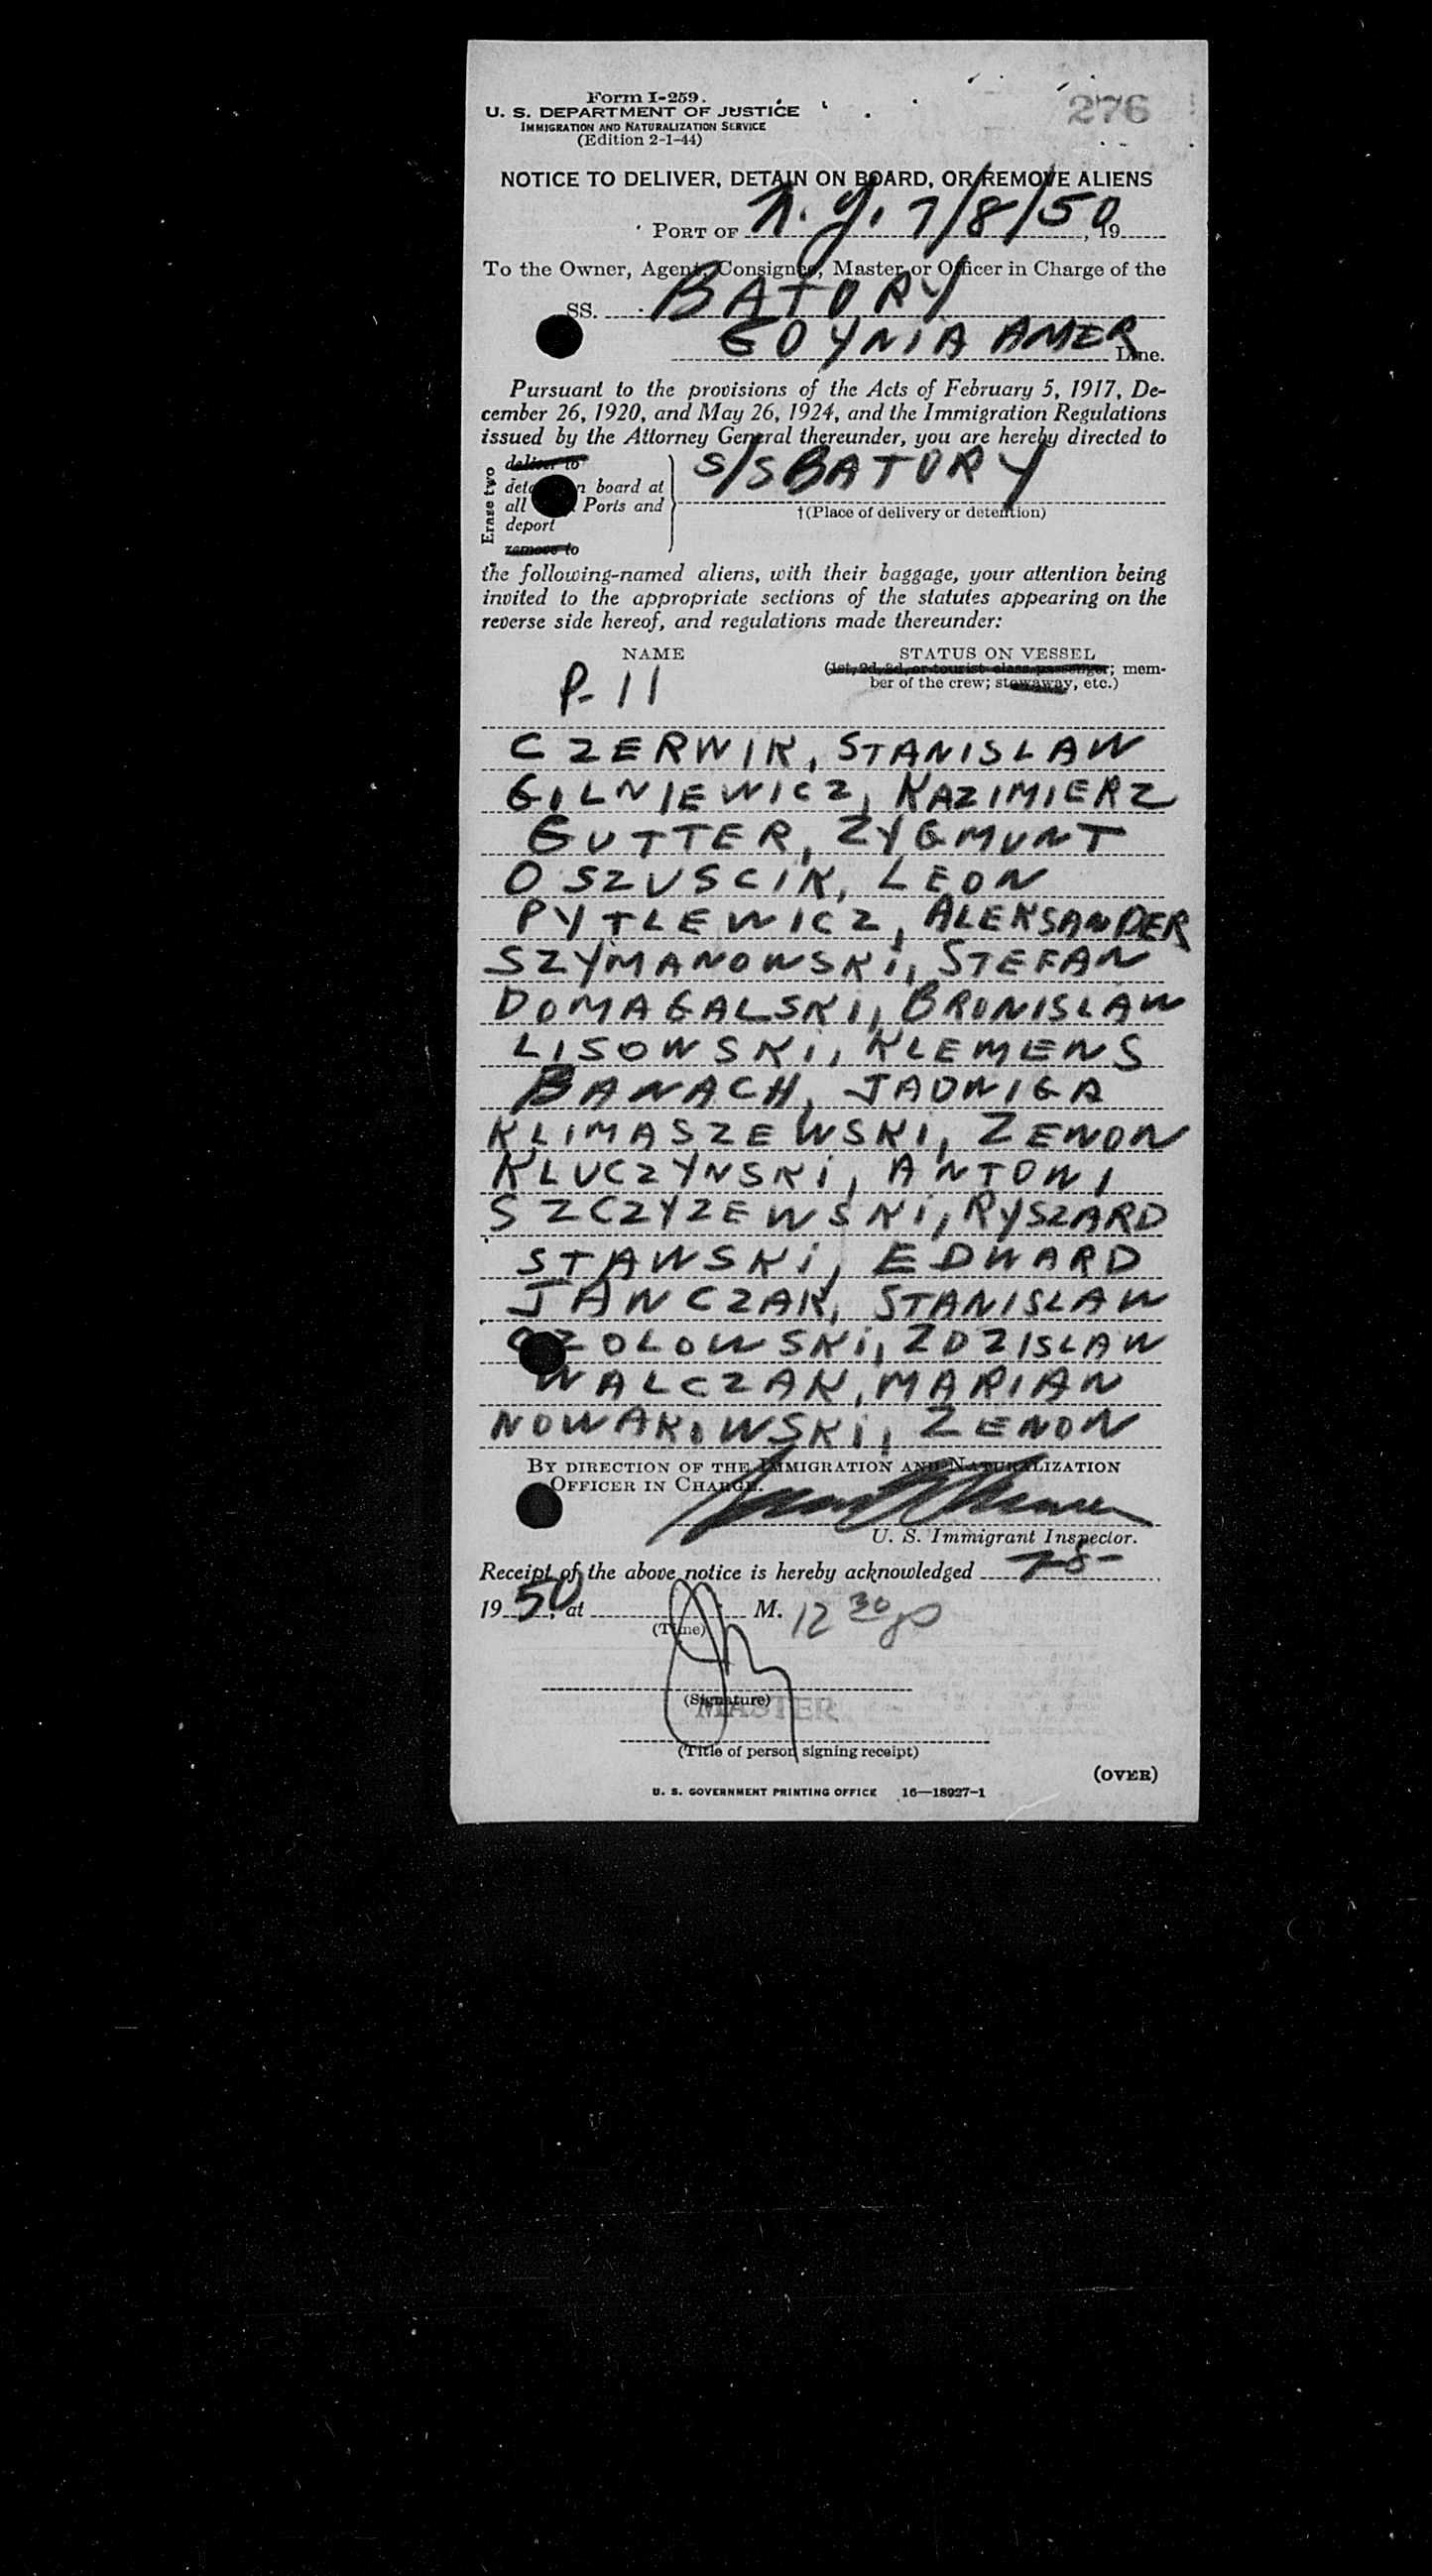 276
Form I-259.
U. S. DEPARTMENT OF JUSTICE
IMMIGRATION AND NATURALIZATION SERVICE
(Edition 2-1-44)
NOTICE TO DELIVER, DETAIN ON BOARD, OR REMOVE ALIENS
PORT OF N.Y. 7/8/50, 19
To the Owner, Agent, Consignee, Master or Officer in Charge of the
SS. BATORY
GDYNIA AMER Line.
Pursuant to the provisions of the Acts of February 5, 1917, De-
cember 26, 1920, and May 26, 1924, and the Immigration Regulations
issued by the Attorney General thereunder, you are hereby directed to
Erase two
deliver to
board at
all Ports and
deport
remove to
S/S BATORY
†(Place of delivery or detention)
the following-named aliens, with their baggage, your attention being
invited to the appropriate sections of the statutes appearing on the
reverse side hereof, and regulations made thereunder:
NAME STATUS ON VESSEL
(1st, 2d, 3d, or tourist class passenger; mem-
ber of the crew; stowaway, etc.)
P-11
CZERWIK, STANISLAW
GILNIEWICZ, KAZIMIERZ
GUTTER, ZYGMUNT
OSZUSCIK, LEON
PYTLEWICZ, ALEKSANDER
SZYMANOWSKI, STEFAN
DOMAGALSKI, BRONISLAW
LISOWSKI, KLEMENS
BANACH, JADWIGA
KLIMASZEWSKI, ZENON
KLUCZYNSKI, ANTONI
SZCZYZEWSKI, RYSZARD
STAWSKI, EDWARD
JANCZAK, STANISLAW
OZOLOWSKI, ZDZISLAW
WALCZAK, MARIAN
NOWAKOWSKI, ZENON
BY DIRECTION OF THE IMMIGRATION AND NATURALIZATION
OFFICER IN CHARGE.
U. S. Immigrant Inspector.
Receipt of the above notice is hereby acknowledged 7-8-
19 50, at M. 12 30 p
(Time)
(Signature)
MASTER
(Title of person signing receipt)
(OVER)
U. S. GOVERNMENT PRINTING OFFICE 16—18927-1